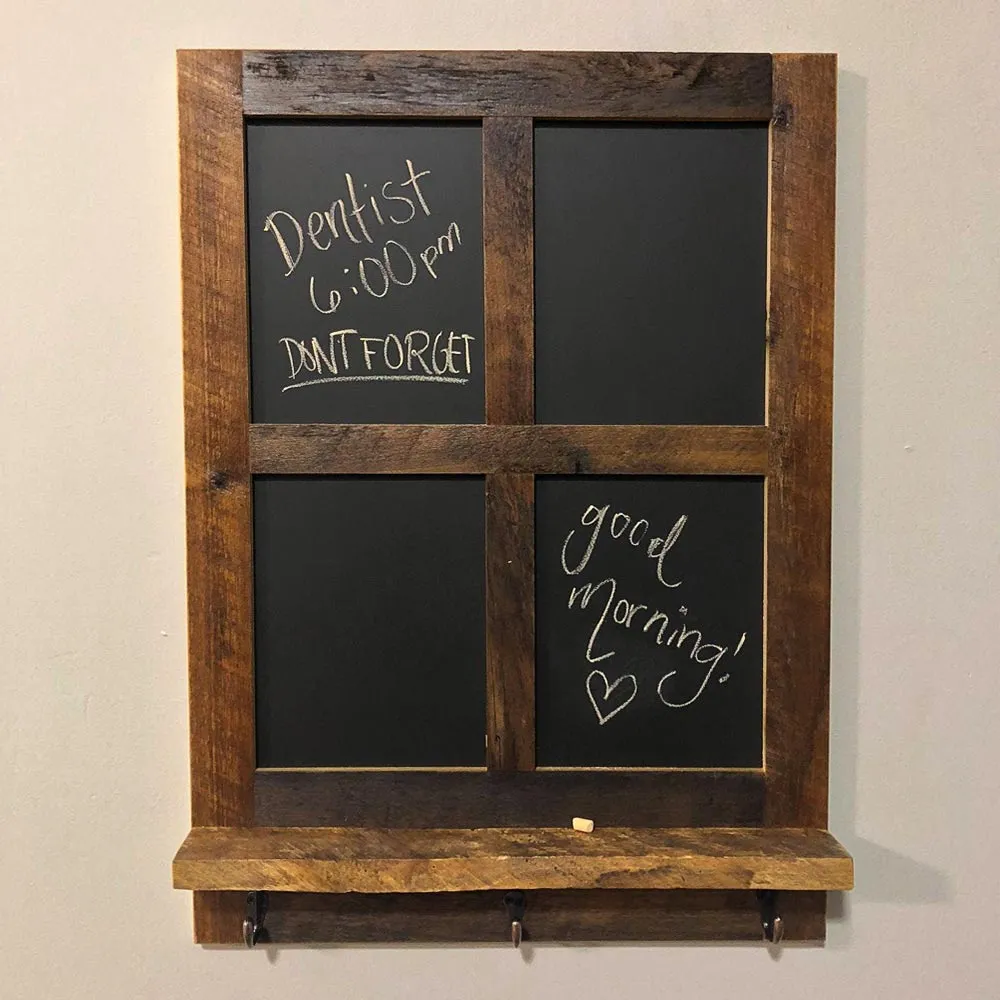 Dentist
6:00 pm
DON'T FORGET
good
morning!